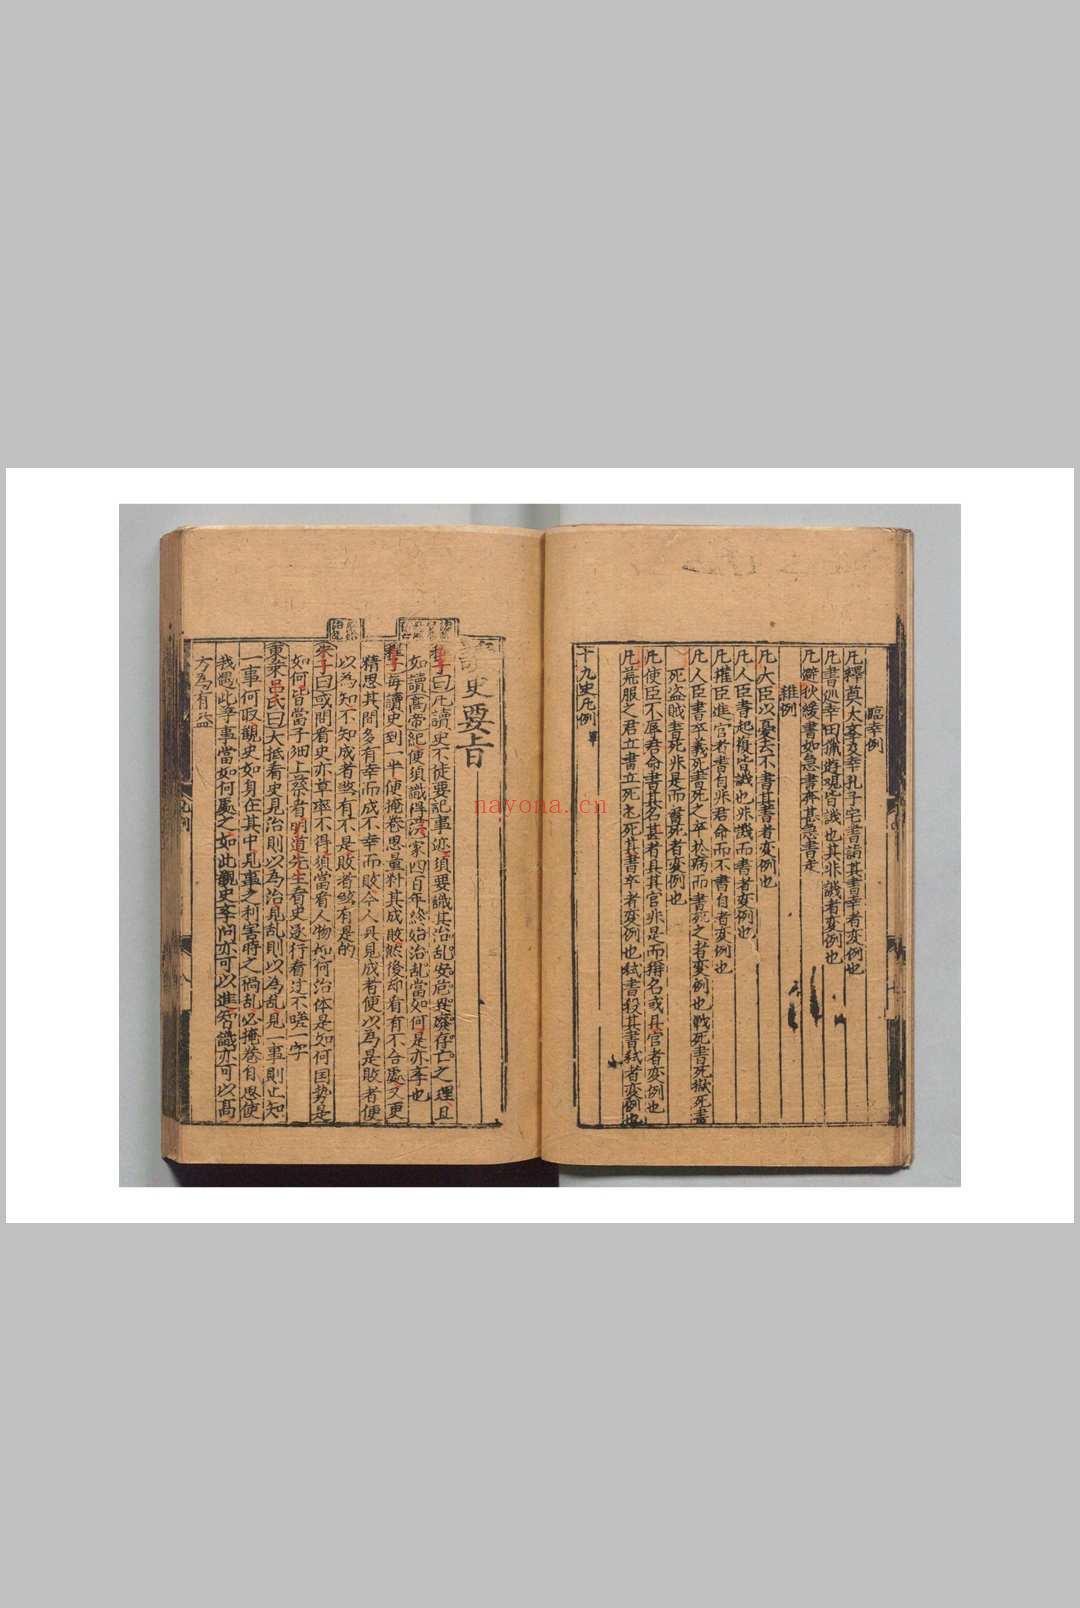 臨幸例
凡釋奠太學及幸孔子宅書詣其書幸者变例也
凡書廵幸田獵遊观皆譏也其非譏者变例也
凡避狄緩書如急書奔甚急書走
雜例
凡大臣以憂去不書其書者变例也
凡人臣書起復皆譏也非譏而書者变例也
凡擢臣進官者書自非君命而不書自者变例也
凡人臣書卒義死書死之卒扵病而書死之者变例也戰死書死獄死書
死盗賊書死非是而書死者变例也
凡使臣不辱君命書其名甚者具其官非是而擧名或具官者变例也
凡荒服之君立書立死书死其書卒者变例也弒書殺其書弒者变例也
十九史凡例 畢
讀史要旨
程子曰凡讀史不徒要記事迹須要識其治乱安危興廢存亡之理且
如讀高帝紀便須識得漢家四百年終始治乱當如何是亦学也
程子每讀史到一半便掩卷思量料其成敗然後却看有不合處又更
精思其間多有幸而成不幸而敗今人只見成者便以為是敗者便
以為知不知成者煞有不是敗者煞有是的
朱子曰或問看史亦草率不得須當看人物如何治体是如何国勢是
如何皆當子细上蔡者明道先生看史逐行看过不嗟一字
東萊吕氏曰大抵看史見治則以為治見乱則以為乱見一事則止知
一事何取觀史如身在其中見事之利害時之禍乱必掩卷自思使
我遇此等事當如何處之如此觀史学问亦可以進智識亦可以高
方為有益
凡例
nayona.cn